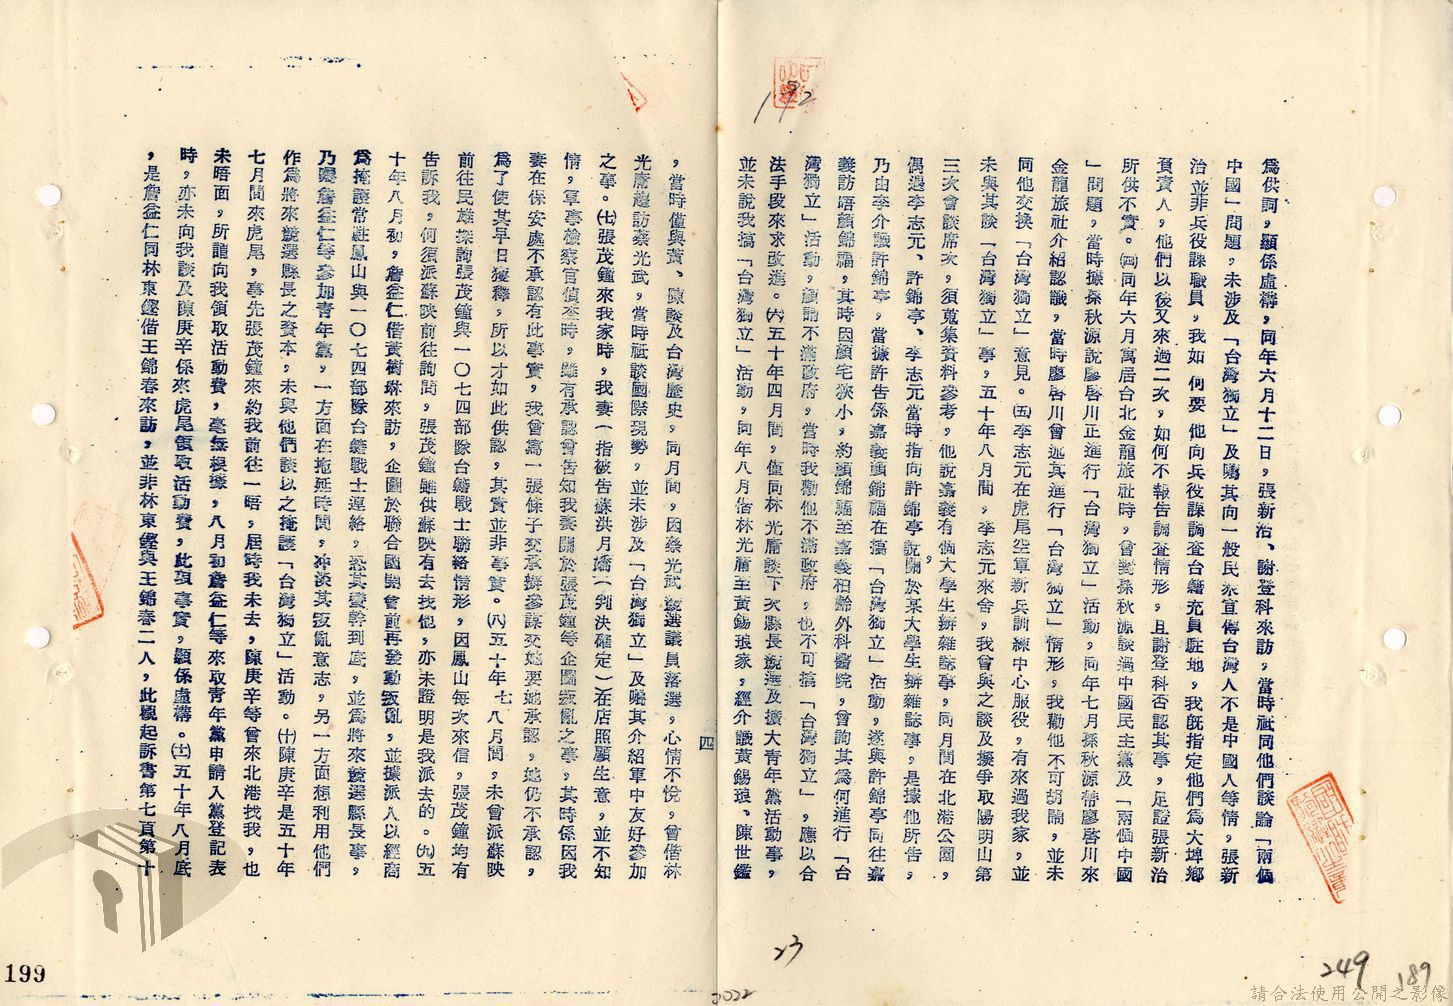 為供詞，顯係虛構，同年六月十二日，張新治、謝登科來訪，當時祗同他們談論「兩個
中國」問題，未涉及「台灣獨立」及囑其向一般民眾宣傳台灣人不是中國人等情，張新
治並非兵役課職員，我如何要他向兵役課調查台籍充員駐地，我既指定他們為大埤鄉
負責人，他們以後又來過二次，如何不報告調查情形，且謝登科否認其事，足證張新治
所供不實。㈣同年六月寓居台北金龍旅社時，曾對孫秋源談過中國民主黨及「兩個中國
」問題，當時據孫秋源說廖啓川正進行「台灣獨立」活動，同年七月孫秋源帶廖啓川來
金龍旅社介紹認識，當時廖啓川曾述其進行「台灣獨立」情形，我勸他不可胡鬧，並未
同他交換「台灣獨立」意見。㈤李志元在虎尾空軍新兵訓練中心服役，有來過我家，並
未與其談「台灣獨立」事，五十年八月間，李志元來舍，我曾與之談及擬爭取陽明山第
三次會談席次，須蒐集資料參考，他說嘉義有個大學生辦雜誌事，同月間在北港公園，
偶遇李志元、許錦亭、李志元當時指向許錦亭說，關於某大學生辦雜誌事，是據他所告，
乃由李介識許錦亭，當據許告係嘉義顏錦福在搞「台灣獨立」活動，遂與許錦亭同往嘉
義訪晤顏錦福，其時因顏宅狹小，約顏錦福至嘉義相齡外科醫院，曾詢其為何進行「台
灣獨立」活動，顏謂不滿政府，當時我勸他不滿政府，也不可搞「台灣獨立」，應以合
法手段來求改進。㈥五十年四月間，僅同林光庸談下次縣長競選及擴大青年黨活動事，
並未說我搞「台灣獨立」活動，同年八月偕林光庸至黃錫琅家，經介識黃錫琅、陳世鑑
四
，當時僅與黃、陳談及台灣歷史，同月間，因蔡光武競選議員落選，心情不悅，曾偕林
光庸趨訪蔡光武，當時祗談國際現勢，並未涉及「台灣獨立」及囑其介紹軍中友好參加
之事。㈦張茂鐘來我家時，我妻（指被告蘇洪月嬌（判決確定）在店照顧生意，並不知
情，軍事檢察官偵查時，雖有承認曾告知我妻關於張茂鐘等企圖叛亂之事，其時係因我
妻在保安處不承認有此事實，我曾寫一張條子交承辦參謀交她要她承認，她仍不承認，
為了使其早日獲釋，所以才如此供認，其實並非事實。㈧五十年七、八月間，未曾派蘇映
前往民雄探詢張茂鐘與一〇七四部隊台籍戰士聯絡情形，因鳳山每次來信，張茂鐘均有
告訴我，何須派蘇映前往詢問，張茂鐘雖供蘇映有去找他，亦未證明是我派去的。㈨五
十年八月初，詹益仁偕黃樹琳來訪，企圖於聯合國開會前再發動叛亂，並據派人以經商
為掩護常駐鳳山與一〇七四部隊台籍戰士連絡，恐其蠻幹到底，並為將來競選縣長事，
乃邀詹益仁等參加青年黨，一方面在拖延時間，冲淡其叛亂意志，另一方面想利用他們
作為將來競選縣長之資本，未與他們談以之掩護「台灣獨立」活動。㈩陳庚辛是五十年
七月間來虎尾，事先張茂鐘來約我前往一晤，屆時我未去，陳庚辛等曾來北港找我，也
未晤面，所謂向我領取活動費，毫無根據，八月初詹益仁等來取青年黨申請入黨登記表
時，亦未向我談及陳庚辛係來虎尾領取活動費，此項事實，顯係虛構。㈩五十年八月底
，是詹益仁同林東鏗偕王錦春來訪，並非林東鏗與王錦春二人，此觀起訴書第七頁第十
192
23
249
189
2022
199
請合法使用公開之影像